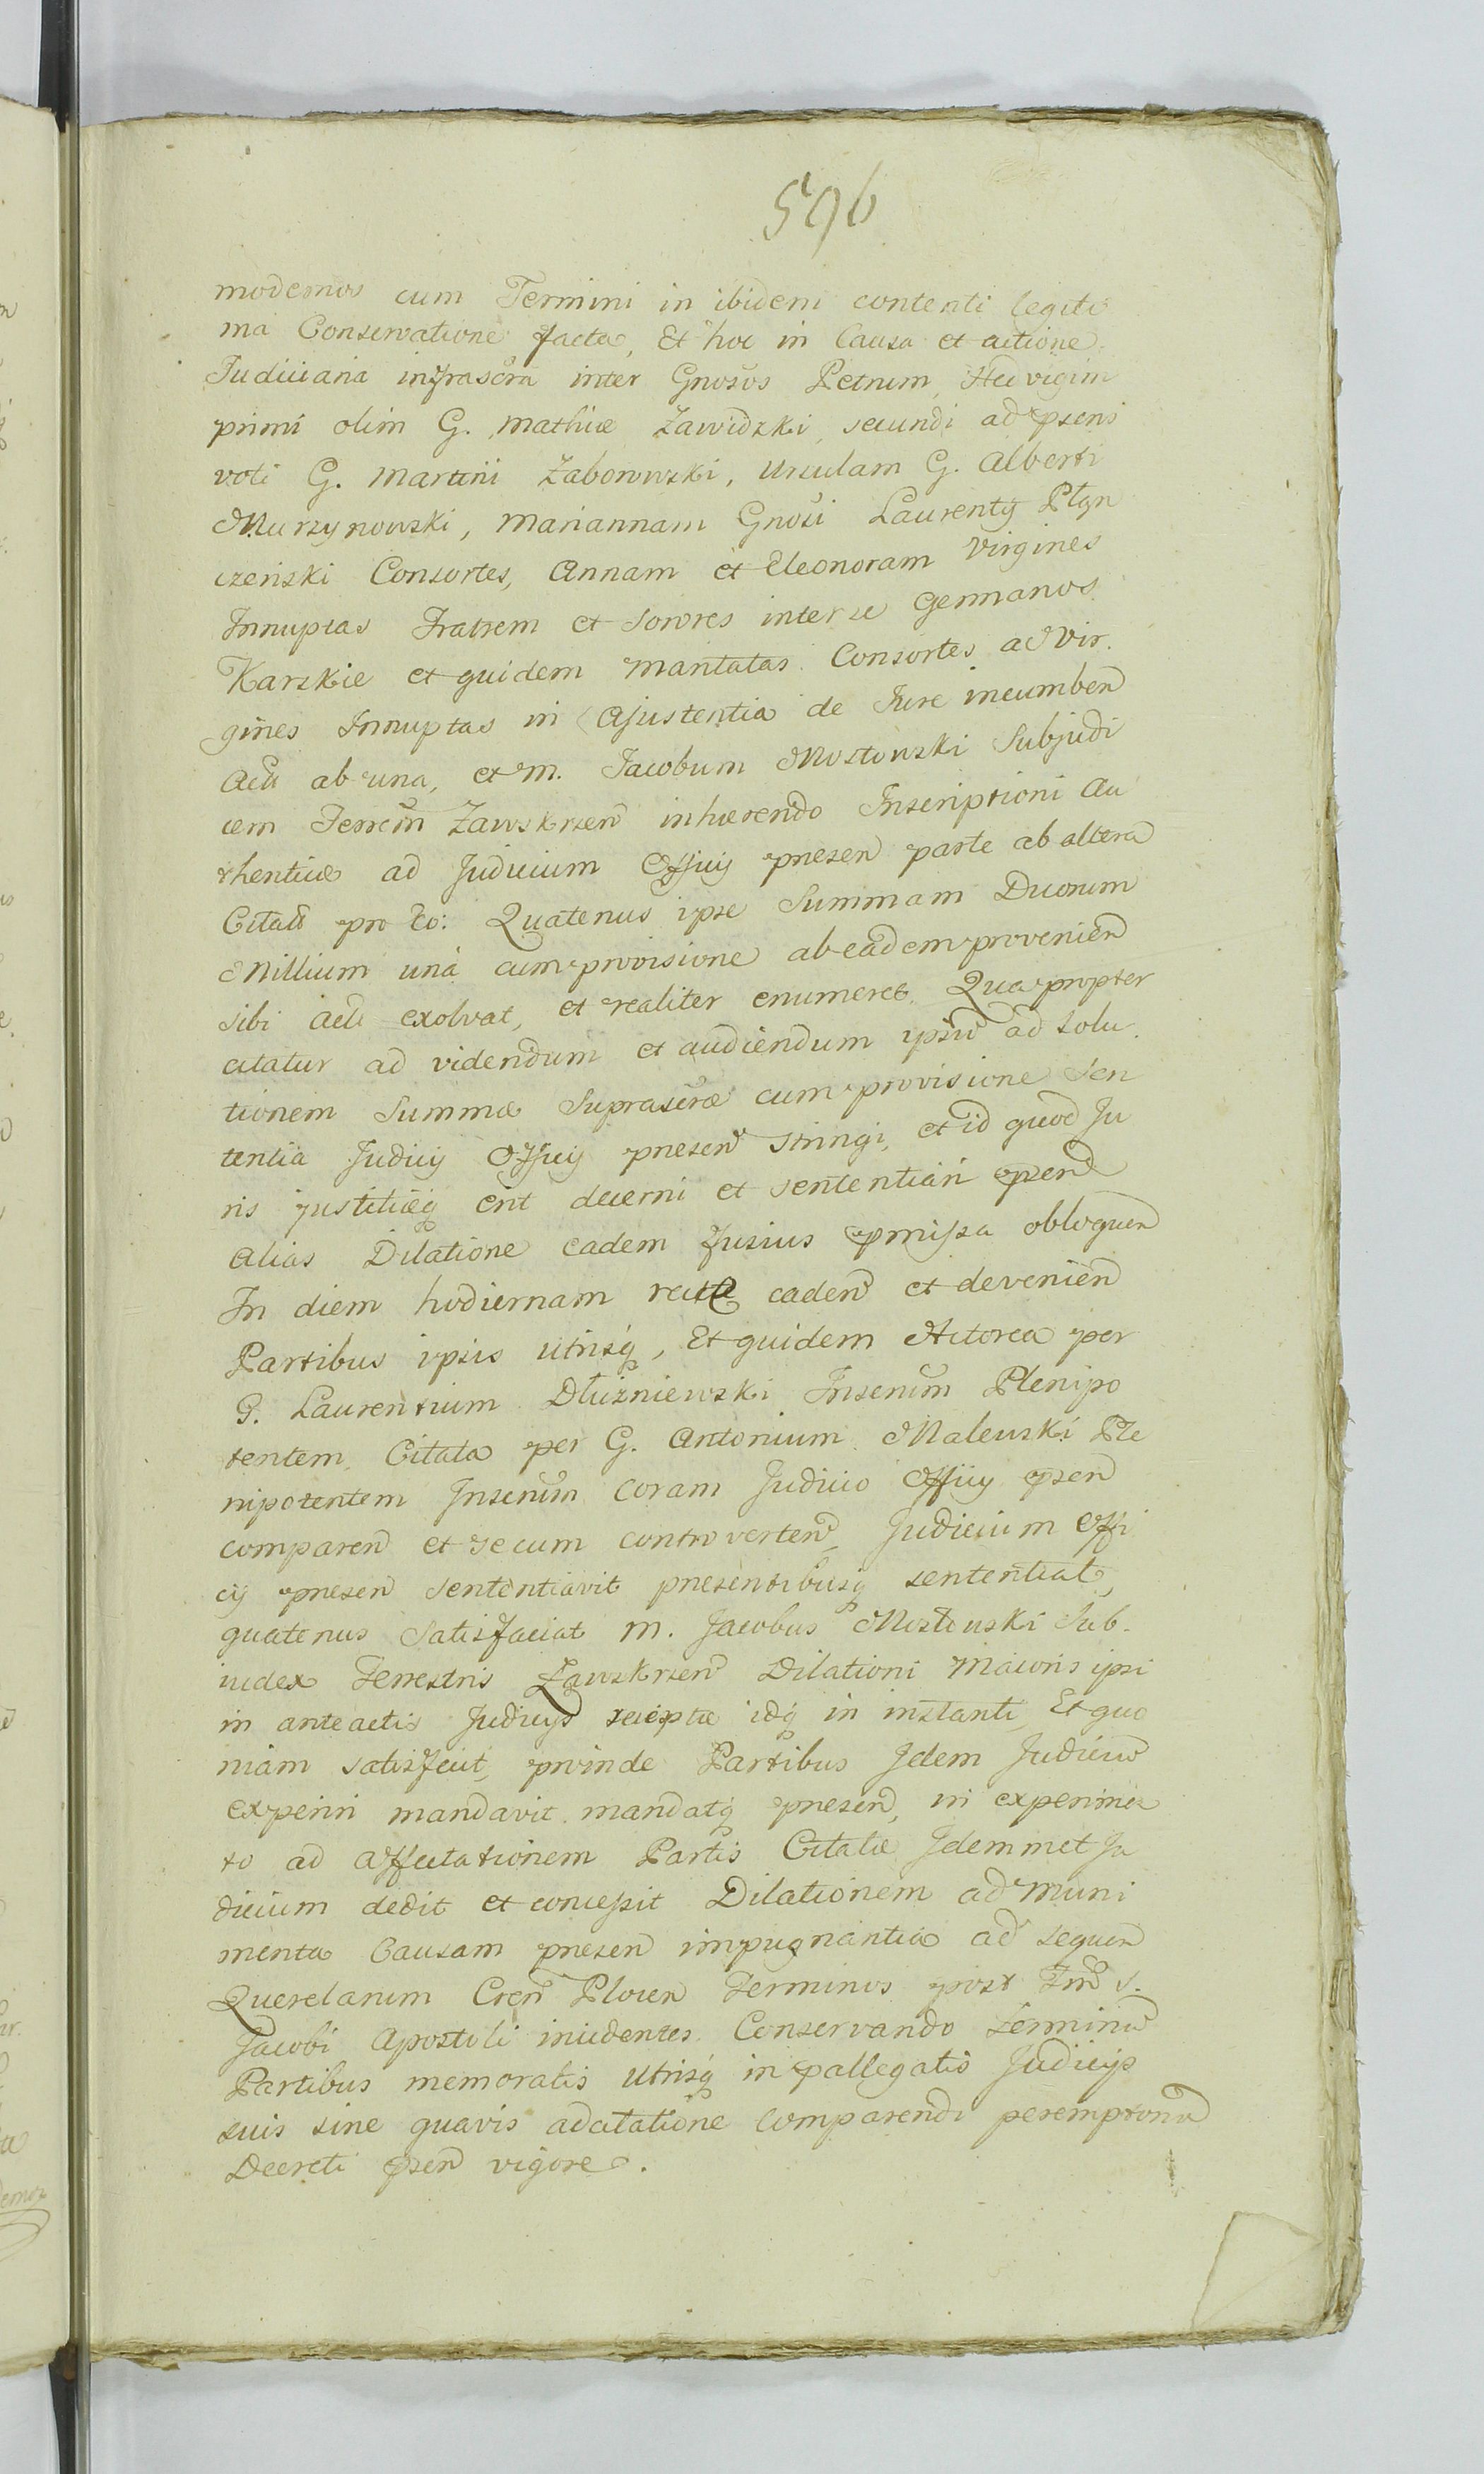 596
modernos cum Termini in ibidem contenti legiti
ma Conservatione facta, Et hoc in Causa et actione
Judiciaria infrascra inter Gnosos Petrum, Hedvigim
primi olim G. Mathiæ Zawidzki, secundi ad psens
voti G. Martini Zaborowski, Ursulam G. Alberti
Murzynowski, Mariannam Gnosi Laurentij Płyn
czeński Consortes, Annam et Eleonoram Virgines
Innuptas Fratrem et Sorores inter se Germanos
Karskie et quidem Maritatas Consortes ac Vir.
gines Innuptas in Assistentia de Jure incumben
Acti ab una, et M. Jacobum Mostowski Subjudi
cem Terrem Zawskrzen inhærendo Inscriptioni Au
thenticæ ad Judicium Officij præsen parte ab altera
Citati pro eo: Quatenus ipse Summam Duorum
Millium una cum provisione ab eadem provenien
sibi Acti exolvat, et realiter enumeret. Qua propter
citatur ad videndum et audiendum ipsum ad Solu
tionem Summæ Suprascræ cum provisione Sen
tentia Judicij Officij præsen stringi, et id quod Ju
ris justitiæq erit decerni et sententiari psend
alias Dilatione eadem fusius præmissa obloquen
In diem hodiernam recte caden et devenien
Partibus ipsis utrisq, Et quidem Actorea per
G. Laurentium Dłużniewski Insenum Plenipo
tentem, Citata per G. Antonium Malewski Ple
nipotentem Insenum coram Judicio Officij psen
comparen et secum controverten, Judicium Offi
cij præsen sententiavit præsentibusq sententiat,
quatenus Satisfaciat M. Jacobus Mostowski Sub.
iudex Terrestris Zawskrzen Dilationi Maioris ipsi
in anteactis Judicijs receptæ idq in instanti, Et quo
niam satisfecit, proinde Partibus Idem Judicium
experiri mandavit mandatq præsen, in experimen
to ad affectationem Partis Citatæ Idemmet Ju
dicium dedit et concessit Dilationem ad Muni
menta Causam præsen impugnantia ad sequen
Querelarum Cren Plocen Terminos post Fm S.
Jacobi Apostoli incidentes. Conservando terminum
Partibus memoratis utrisq in pallegatis Judicijs
suis sine quavis adcitatione comparendi peremptorium
Decreti psen vigore.